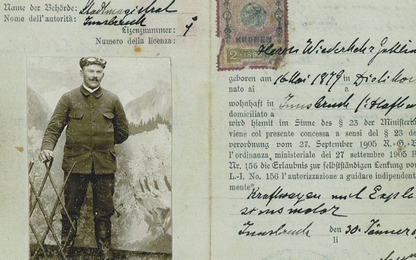 Name der Behörde: Stadtmagistrat
Nome dell'autorità: Innsbruck
Lizenznummer:
Numero della licenza:
KRONEN
2
Herrn Wiederkehr
geboren am 16. Mai 1879 in Dietikon
nato ai a
wohnhaft in Innsbruck
domiciliato a
wird hiemit im Sinne des § 23 der Ministerial
viene col presente concessa a sensi del § 23 de
verordnung vom 27. September 1905 R.-G.-B
l'ordinanza ministeriale del 27 settembre 1905
Nr. 156 die Erlaubnis zur selbständigen Lenkung von
L.-I. No. 156 l'autorizzazione a guidare independent
mente
Kraftwagen mit Explo
sionsmotor
Innsbruck den 30. Jänner
li